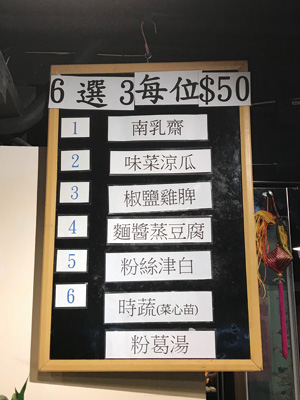 6 選 3 每位$50
1 南乳齋
2 味菜涼瓜
3 椒鹽雞脾
4 麵醬蒸豆腐
5 粉絲津白
6 時蔬(菜心苗)
粉葛湯